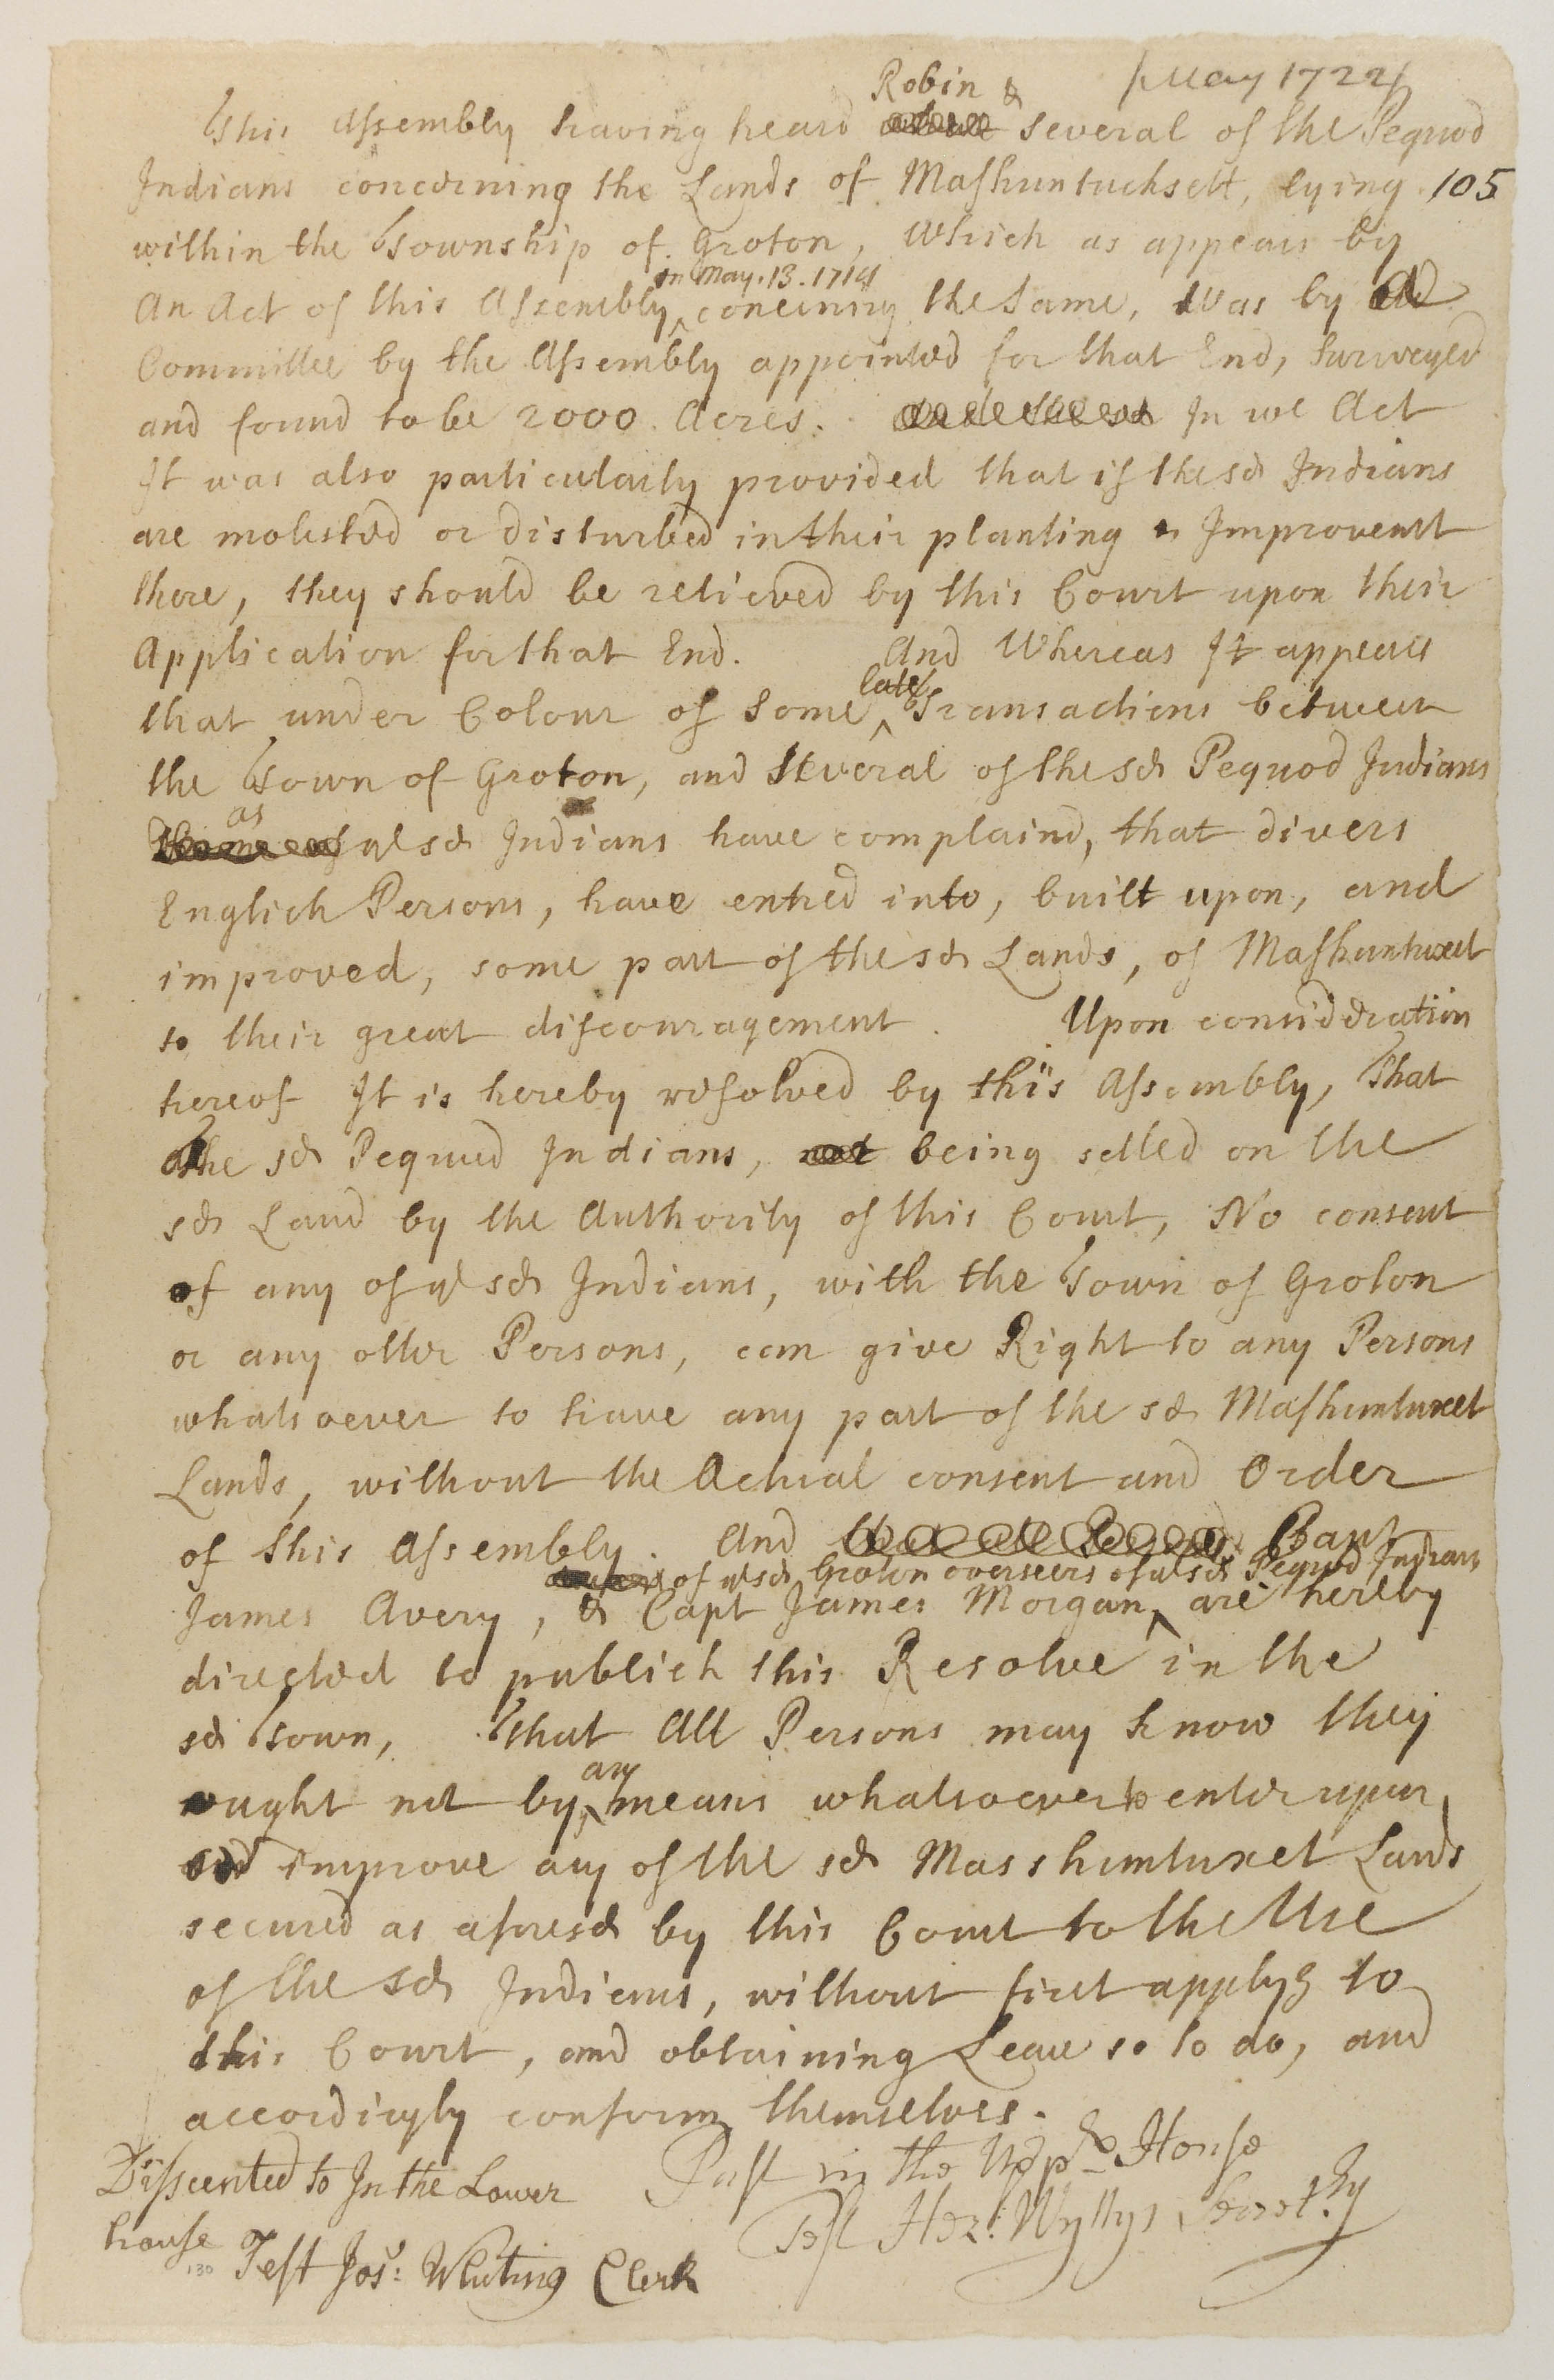 [May 1722]
Robin &
This Assembly having heard several of the Pequod
Indians concerning the Lands of Mashuntucksett, lying 105
within the Township of Groton, Which as appears by
in May. 13. 1714
An Act of this Assembly ‸ concining the same, Was by a
Committee by the Assembly appointed for that End, Surveyed
and found to be 2000 Acres. In wc Act
It was also particularly provided that if the sd Indians
are molested or disturbed in their planting & Improvemt
there, they should be relieved by this Court upon their
Application for that End. And Whereas It appears
late
that under Colour of Some ‸ Transactions between
the Town of Groton, and Several of the sd Pequod Indians
as
ye sd Indians have complaind, that divers
English Persons, have entred into, built upon, and
improved, some part of the sd Lands, of Mashuntuxet
to their great discouragement. Upon consideration
hereof It is hereby resolved by this Assembly, That
The sd Pequod Indians, being setled on the
sd Land by the Authority of this Court, No consent
of any of ye sd Indians, with the Town of Groton
or any other Persons, can give Right to any Persons
whatsoever to have any part of the sd Mashuntuxet
Lands, without the Actual consent and Order
of this Assembly. And Capt
of ye sd Groton overseers of ye sd Pequod Indians
James Avery, & Capt James Morgan ‸ are hereby
directed to publish this Resolve in the
sd Town, That All Persons may know they
any
ought not by ‸ means whatsoever to enter upon
and improve any of the sd Masshuntuxet Lands
secured as aforesd by this Court to the Use
of the sd Indians, without first applyg to
this Court, and obtaining Leave so to do, and
accordingly conform themselves.
Past in the Uppr House
Test Hez: Wyllys Secretry
Disscented to In the Lower
house
130 Test Jos: Whiting Clerk